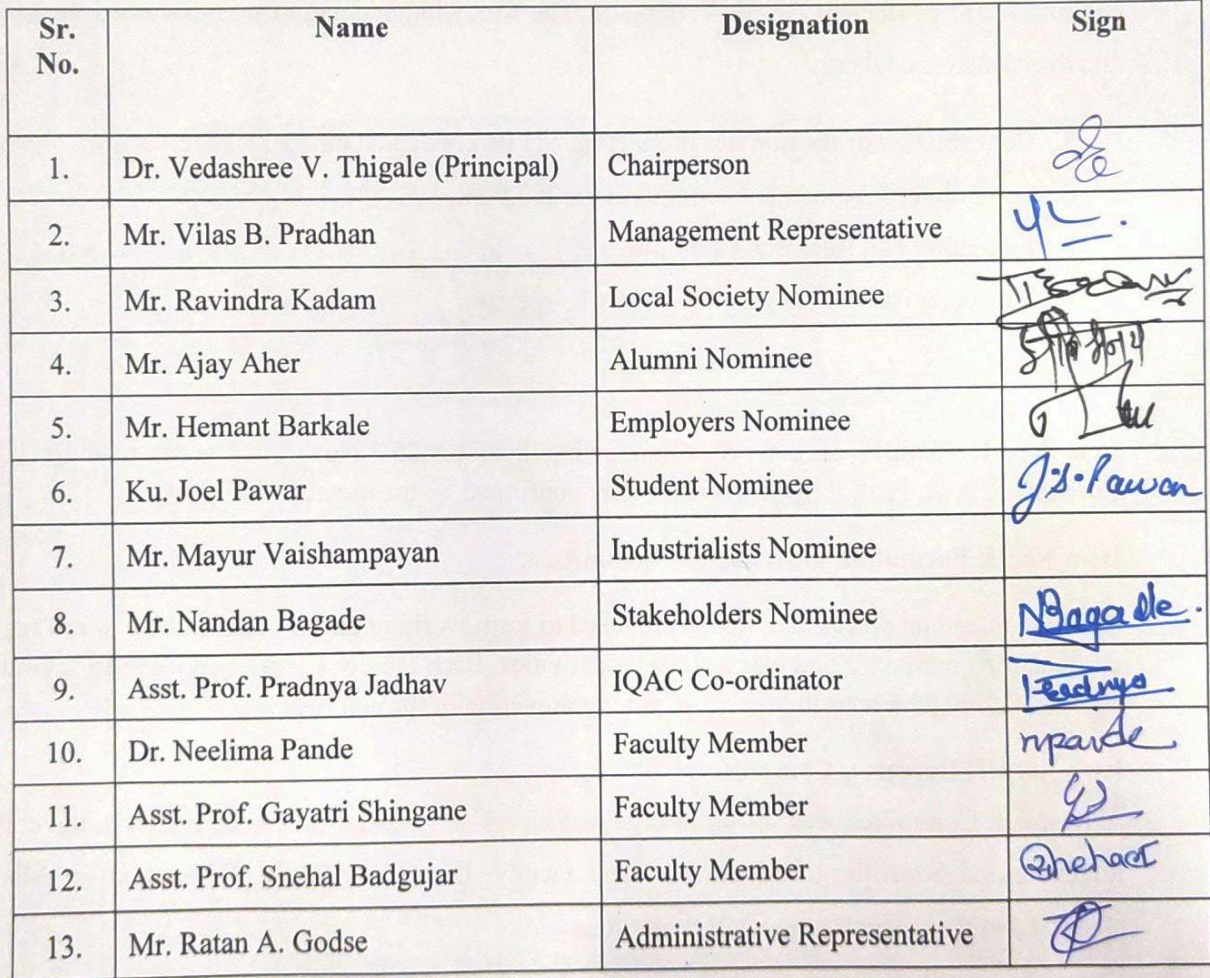 Sr. No. Name Designation Sign
1. Dr. Vedashree V. Thigale (Principal) Chairperson
2. Mr. Vilas B. Pradhan Management Representative
3. Mr. Ravindra Kadam Local Society Nominee
4. Mr. Ajay Aher Alumni Nominee
5. Mr. Hemant Barkale Employers Nominee
6. Ku. Joel Pawar Student Nominee J.S. Pawar
7. Mr. Mayur Vaishampayan Industrialists Nominee
8. Mr. Nandan Bagade Stakeholders Nominee NBagade.
9. Asst. Prof. Pradnya Jadhav IQAC Co-ordinator Pradnya
10. Dr. Neelima Pande Faculty Member npande
11. Asst. Prof. Gayatri Shingane Faculty Member
12. Asst. Prof. Snehal Badgujar Faculty Member
13. Mr. Ratan A. Godse Administrative Representative